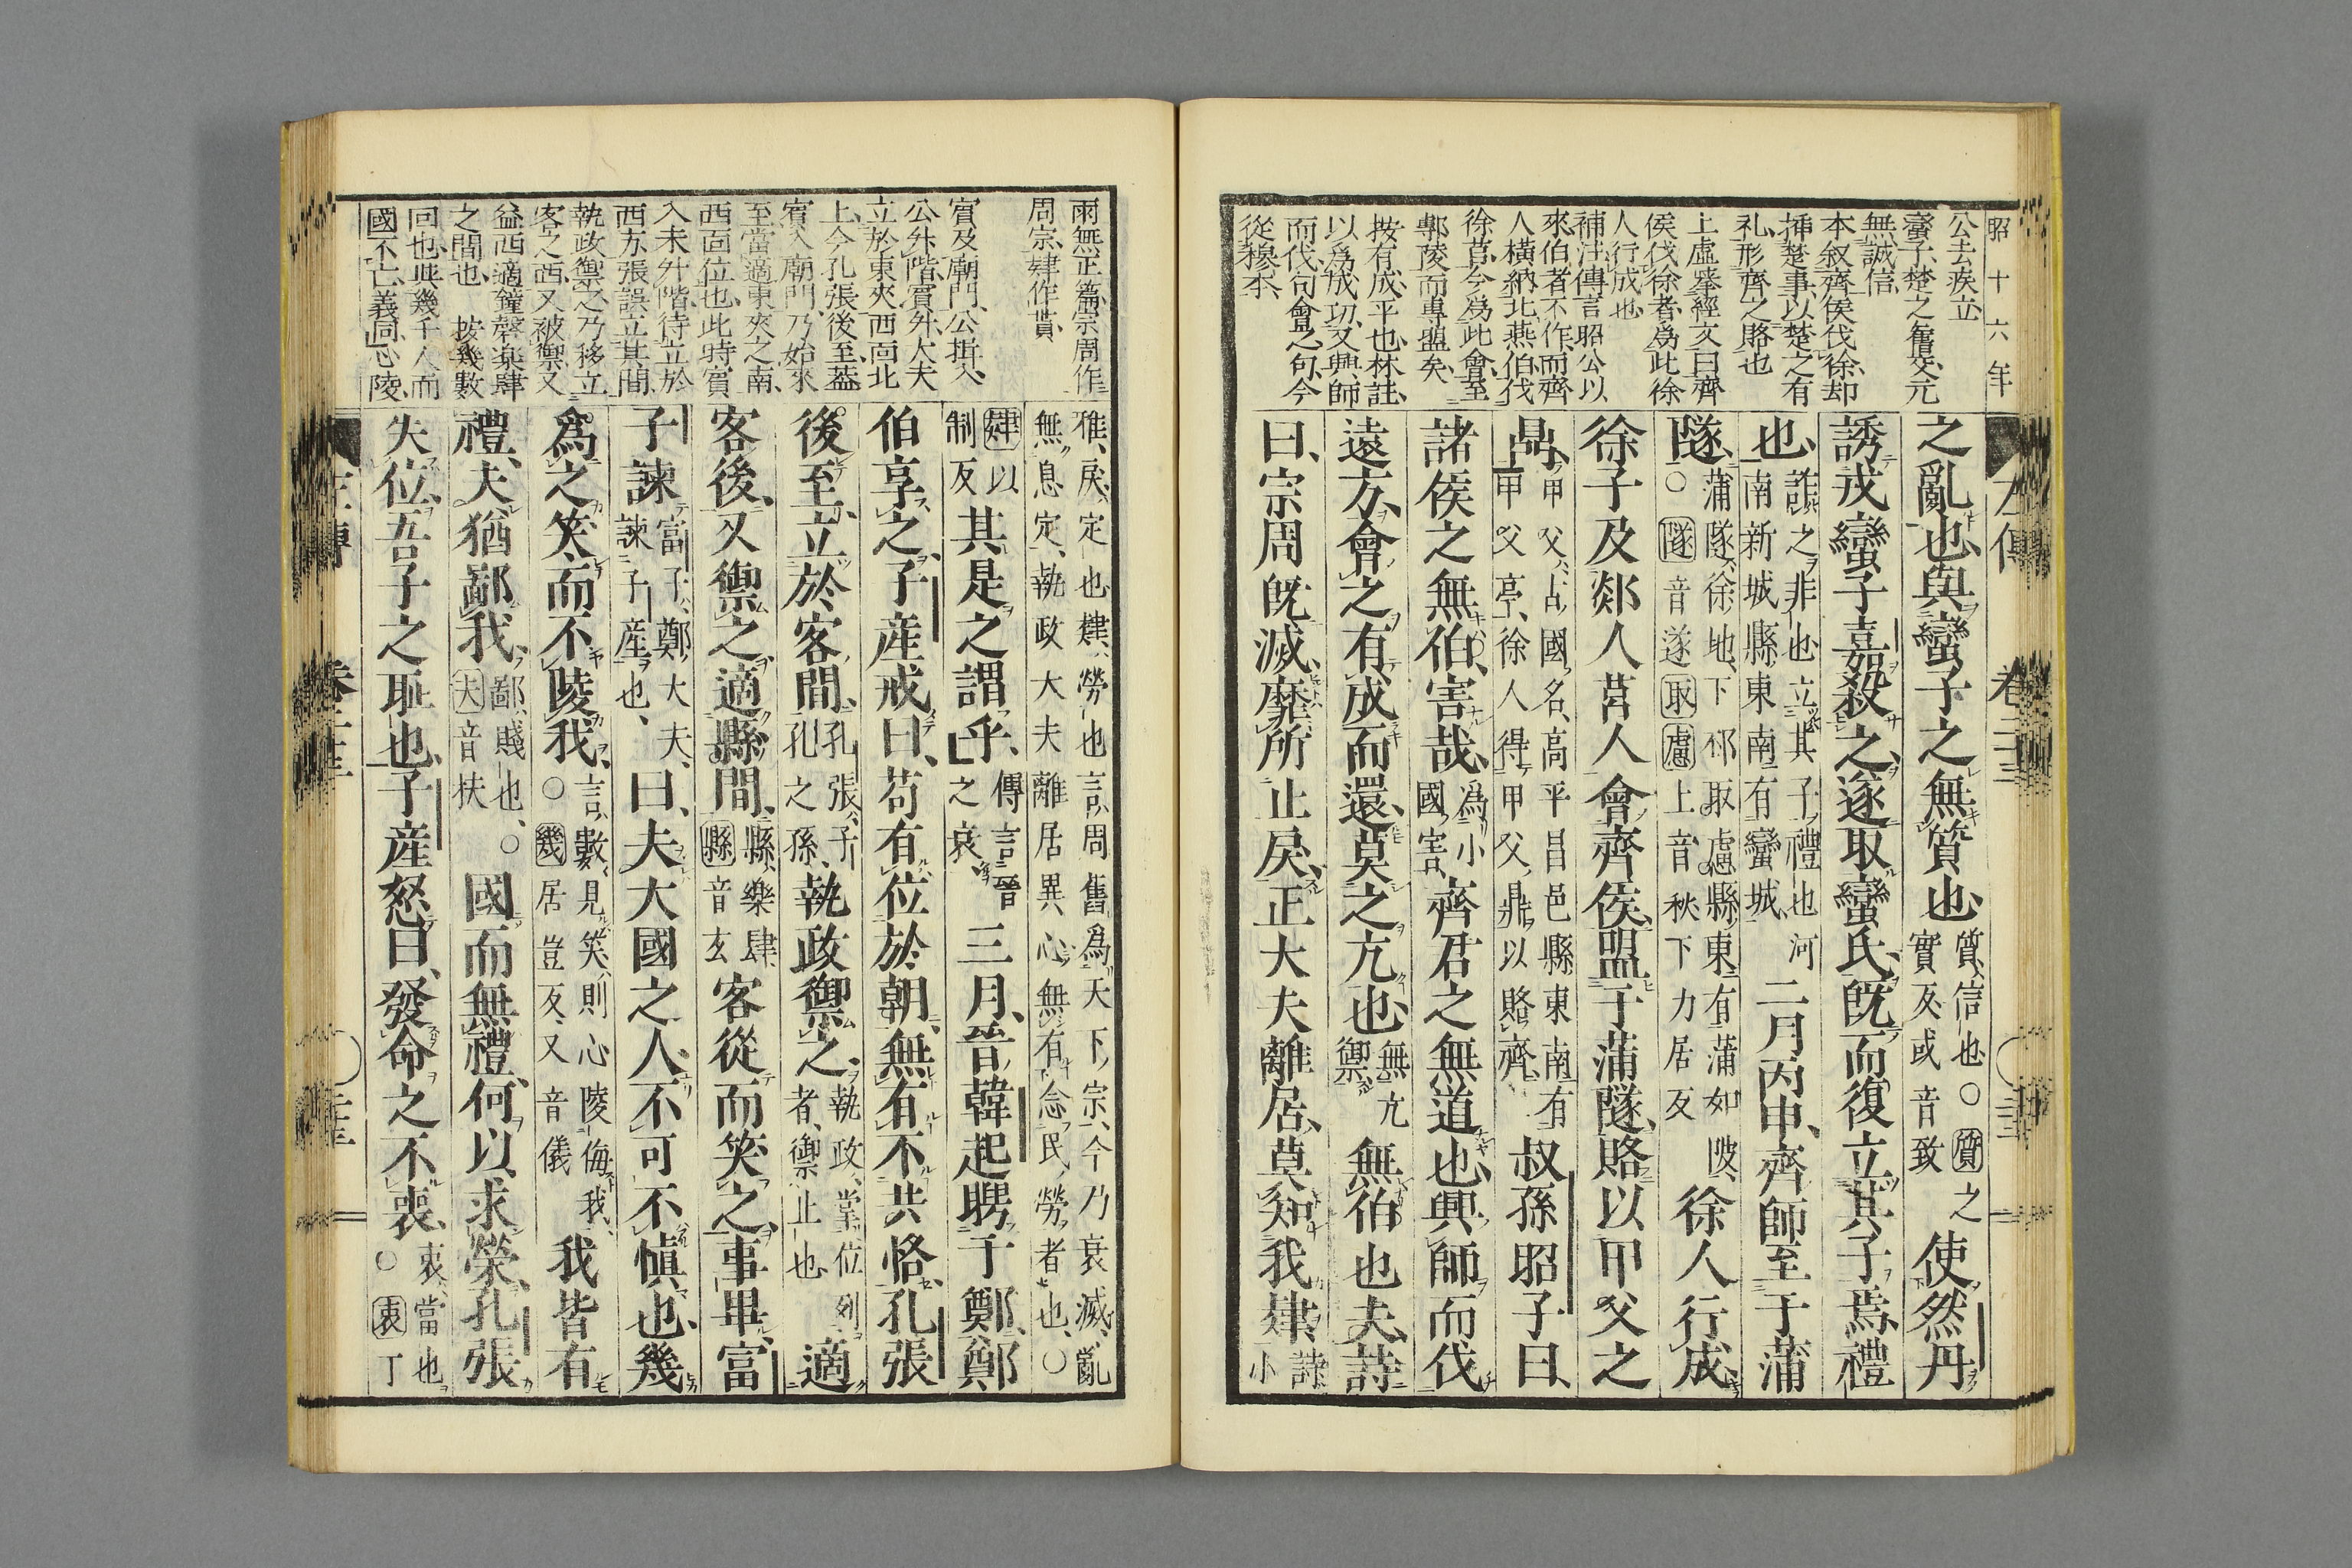 昭十六年
公去疾立
蠻子楚之舊交元
無誠信
本叙齊侯伐徐却
挿楚事以楚之有
礼形齊之賂也
上虛擧經文曰齊
侯伐徐者爲此徐
人行成也
補注傳言昭公以
來伯者不作而齊
人橫納北燕伯伐
徐莒今爲此會至
鄟陵而專盟矣
按有成平也林註
以爲成功又興師
而伐句會之句今
從穆本
左傳 卷二十三
之亂也與蠻子之無質也質信也○質之實反或音致使然丹
誘戎蠻子嘉殺之遂取蠻氏既而復立其子焉禮
也詐之非也立其子禮也河南新城縣東南有蠻城二月丙申齊師至于蒲
隧蒲隧徐地下邳取慮縣東有蒲如陂○隧音遂取慮上音秋下力居反徐人行成
徐子及郯人莒人會齊侯盟于蒲隧賂以甲父之
鼎甲父古國名高平昌邑縣東南有甲父亭徐人得甲父鼎以賂齊叔孫昭子曰
諸侯之無伯害哉爲小國害齊君之無道也興師而伐
遠方會之有成而還莫之亢也無亢禦無伯也夫詩
曰宗周既滅靡所止戾正大夫離居莫知我肄詩小
雨無正篇宗周作
周宗肄作勩
賓及廟門公揖入
公升階賓升大夫
立於東夾西面北
上今孔張後至蓋
賓入廟門乃始來
至當適東夾之南
西面位也此時賓
入未升階待立於
西方張誤立其間
執政禦之乃移立
客之西又被禦又
益西適鐘磬樂肆
之間也 按幾數
回也與幾千人而
國不亡義同心陵
雅戾定也肄勞也言周舊爲天下宗今乃衰滅亂
無息定執政大夫離居異心無有念民勞者也○
肄以制反其是之謂乎傳言晉之衰三月晉韓起聘于鄭鄭
伯享之子産戒曰苟有位於朝無有不共恪孔張
後至立於客間孔張子孔之孫執政禦之執政掌位列者禦止也適
客後又禦之適縣間縣樂肆縣音玄客從而笑之事畢富
子諫富子鄭大夫諫子産也曰夫大國之人不可不愼也幾
爲之笑而不陵我言數見笑則心陵侮我○幾居豈反又音儀我皆有
禮夫猶鄙我鄙賤也○夫音扶國而無禮何以求榮孔張
失位吾子之恥也子産怒曰發命之不衷衷當也○衷丁